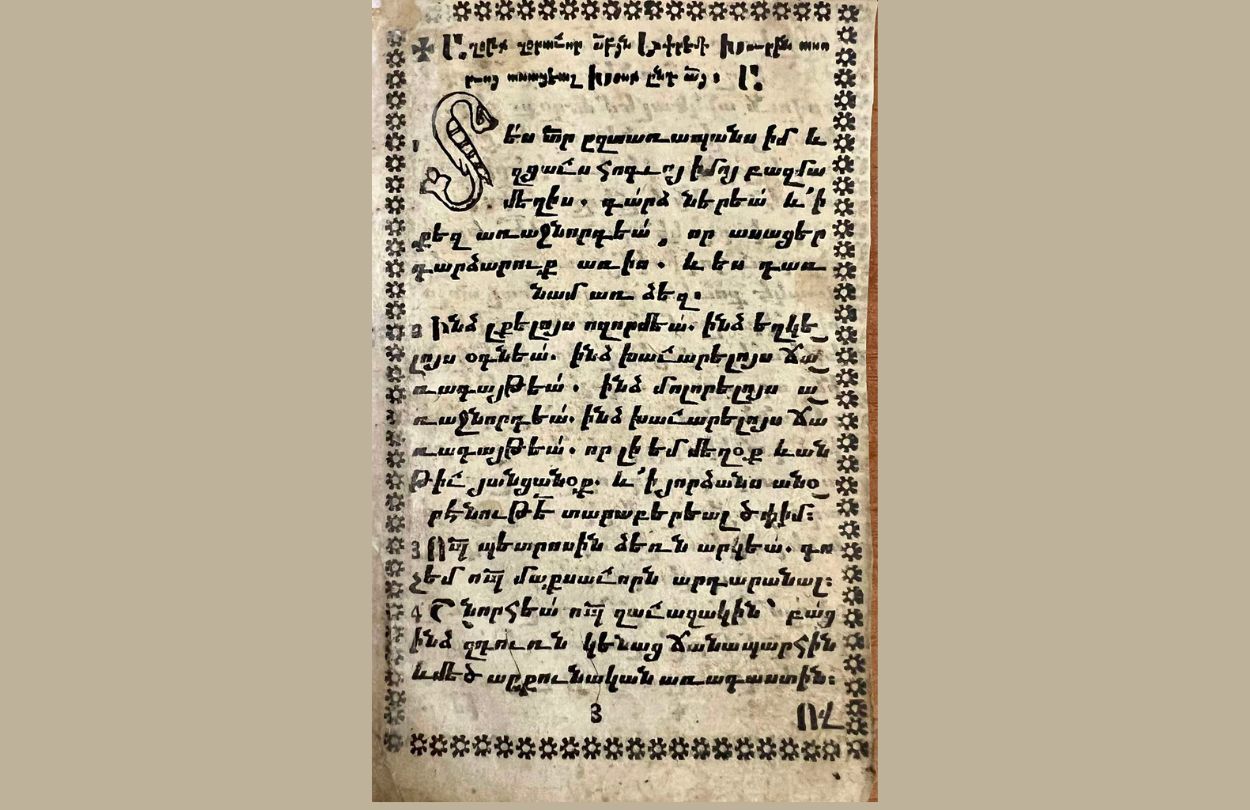 սբյն Եփրեմի
ասացեալ խօսք ընդ ած.
1 Տե՛ս տր ըզտառապանս իմ և
զցաւս հոգւոյ իմոյ բազմա
մեղիս. դարձ ներեա՛ և ՛ի
քեզ առաջնորդեա՛, որ ասացեր
դարձարուք առ իս. և ես դառ
նամ առ ձեզ.
2 Ինձ լքելոյս ողորմեա՛. ինձ եղկե
լոյս օգնեա՛. ինձ խաւարելոյս ճա
ռագայթեա՛. ինձ մոլորելոյս ա
ռաջնորդեա՛. ինձ խաւարելոյս ճա
ռագայթեա՛. որ լի եմ մեղօք և ան
թիւ յանցանօք. և ՛ի յորձանս անօ
րէնութե տարաբերեալ ծփիմ։
3 Որպ պետրոսին ձեռն արկեա՛. գո
չեմ որպ մաքսաւորն արդարանալ։
4 Շնորհեա՛ որպ ղաւաղակին՝ բա՛ց
ինձ զդուռն կենաց ճանապարհին
և մեծ արքունական առագաստին։
3 Ով